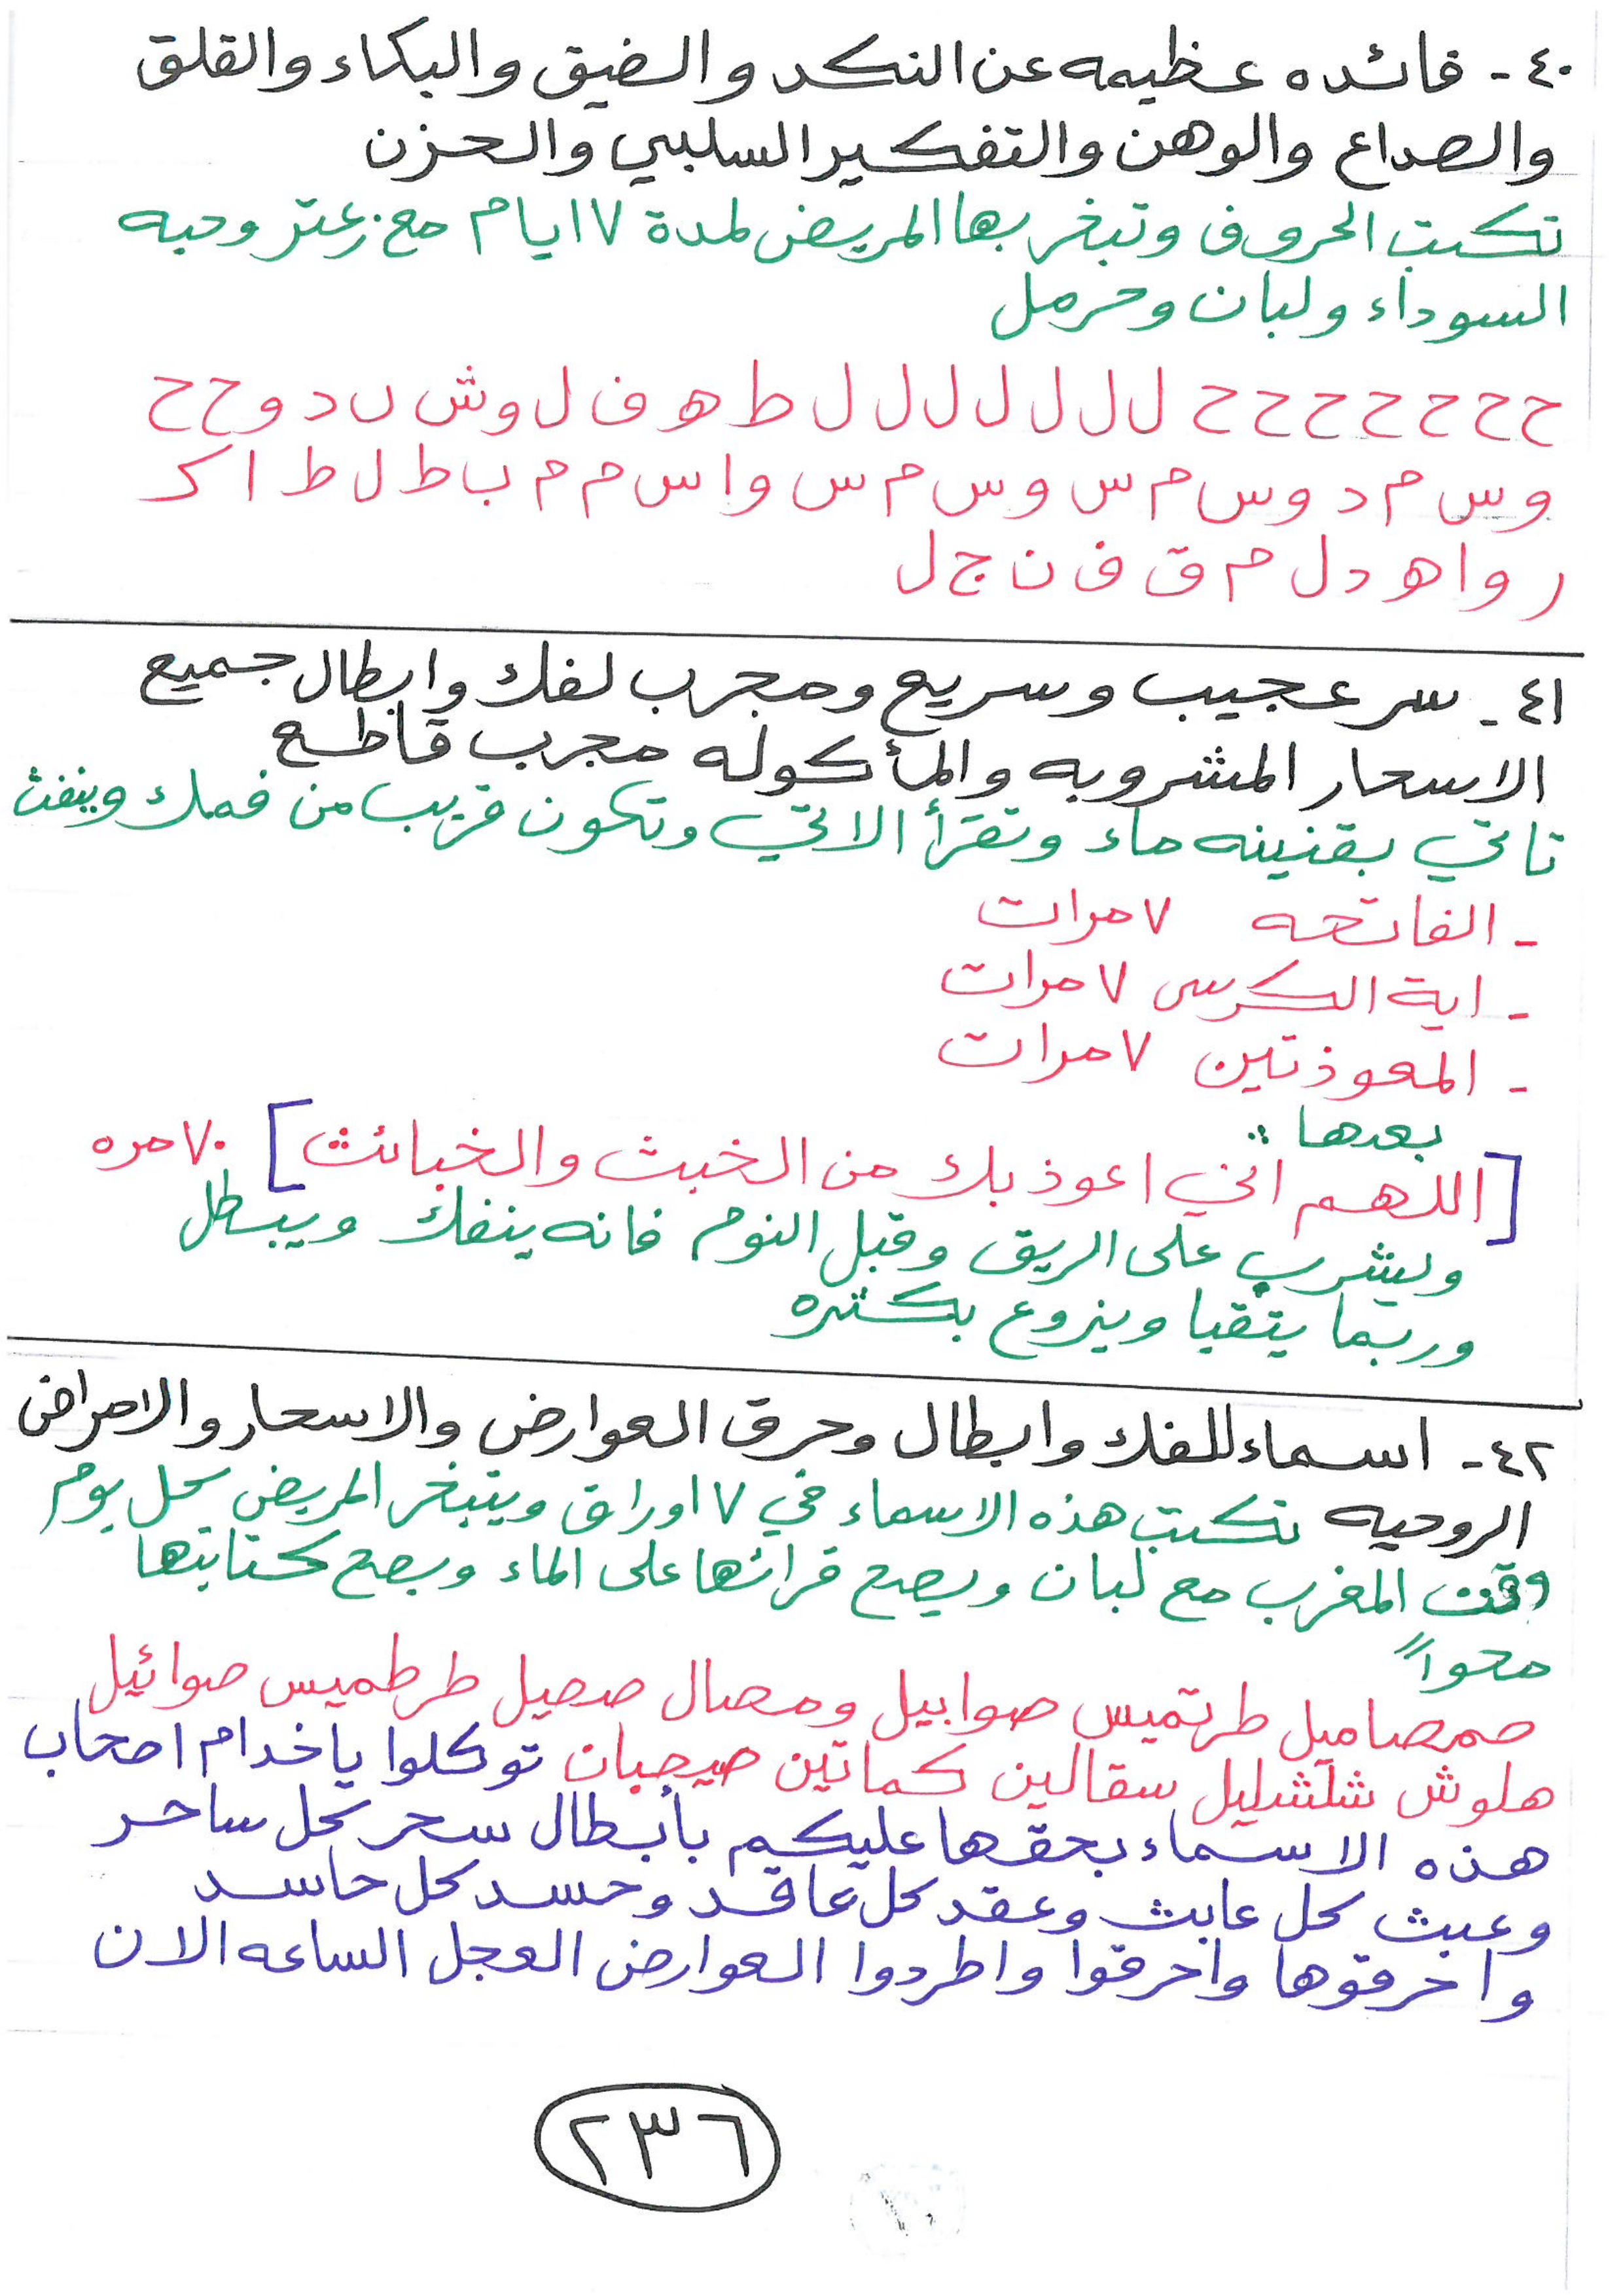 ٤٠- فائده عظيمه عن النكد والضيق والبكاء والقلق
والصداع والوهن والتفكير السلبي والحزن
تكتب الحروف وتبخر بها المريض لمدة ٧ ايام مع زعتر وحبه
السوداء ولبان وحرمل
ح ح ح ح ح ح ح ل ل ل ل ل ل ل ط ه ف ل و ش ں د و ح ح
و س م د و س م س و س م س و ا س م م ب ط ل ط ا ك
ر و ا ه د ل م ق ف ن ج ل
٤١- سر عجيب وسريع ومجرب لفك وابطال جميع
الاسحار المشروبه والمأكوله مجرب قاطع
تاتي بقنينه ماء وتقرأ الاتي وتكون قريب من فمك وينفث
- الفاتحه ٧ مرات
- اية الكرسي ٧ مرات
- المعوذتين ٧ مرات
بعدها:
[اللهم اني اعوذ بك من الخبث والخبائث] ٧٠ مره
ويشرب على الريق وقبل النوم فانه ينفك ويبطل
وربما يتقيا وينزوع بكثره
٤٢- اسماء للفك وابطال وحرق العوارض والاسحار والامراض
الروحيه تكتب هذه الاسماء في ٧ اوراق ويتبخر المريض كل يوم
وقت المغرب مع لبان ويصح قرائتها على الماء ويصح كتابتها
محواً
صمصاميل طرتميس صوابيل ومصال صصيل طرطميس صوائيل
هلوش شلشليل سقالين كماتين صيصبان توكلوا ياخدام اصحاب
هذه الاسماء بحقها عليكم بأبطال سحر كل ساحر
وعبث كل عابث وعقد كل عاقد وحسد كل حاسد
واحرقوها واحرقوا واطردوا العوارض العجل الساعه الان
٢٣٦